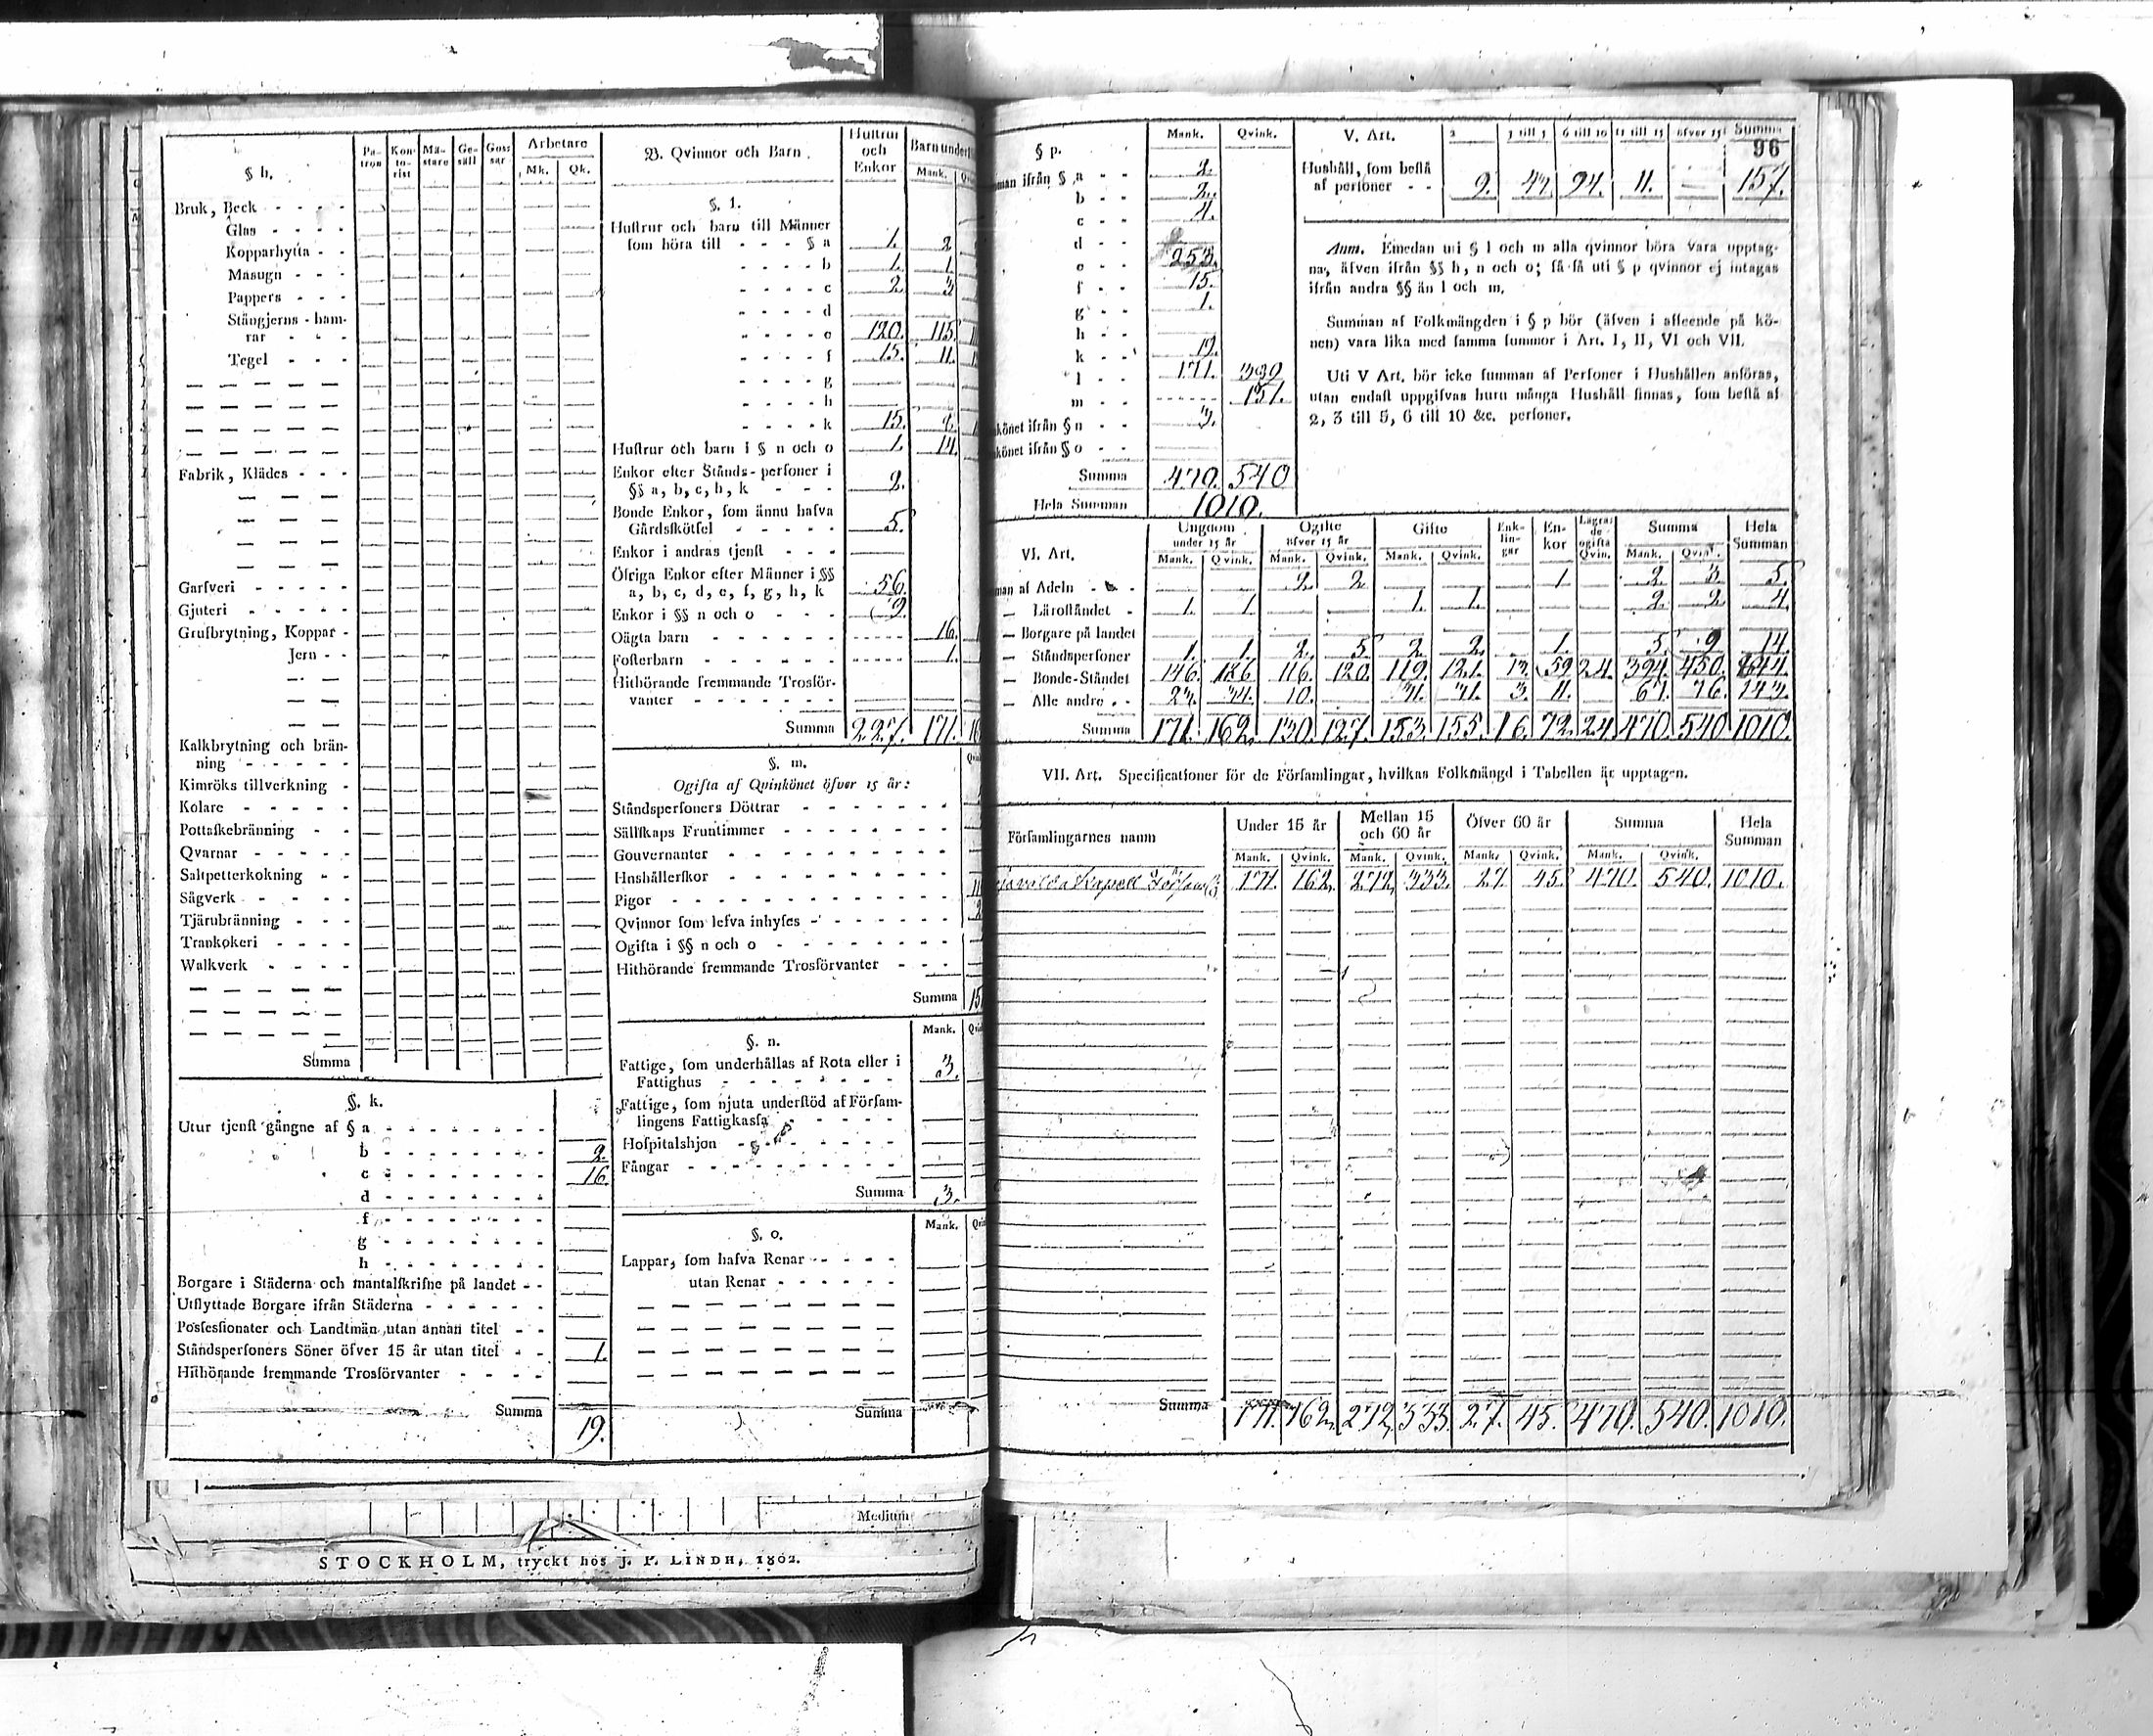 § h.
Pa-tron Kon-to-rist Mä-stare Ge-säll Gos-sar Arbetare
Mk. Qk.
Bruk, Beck - - - -
Glas - - - -
Kopparhytta - -
Masugn - - -
Pappers - - -
Stångjerns-ham-
rar - - -
Tegel - - -
Fabrik, Klädes - - -
Garfveri - - - - -
Gjuteri - - - - -
Grufbrytning, Koppar -
Jern - -
Kalkbrytning och brän-
ning - - - - -
Kimröks tillverkning -
Kolare - - - - -
Pottaskebränning - -
Qvarnar - - - - -
Saltpetterkokning - -
Sågverk - - - -
Tjärubränning - - -
Trankokeri - - - -
Walkverk - - - -
Summa
§. k.
Utur tjenst gångne af § a - - - - - - - -
b - - - - - - - - 2.
c - - - - - - - - 16
d - - - - - - - -
f - - - - - - - -
g - - - - - - - -
h - - - - - - - -
Borgare i Städerna och mantalskrifne på landet - -
Utflyttade Borgare ifrån Städerna - - - - - -
Possessionater och Landtmän utan annan titel - -
Ståndspersoners Söner öfver 15 år utan titel - - 1.
Hithörande fremmande Trosförvanter - - - -
Summa 19.
B. Qvinnor och Barn.
Hustrur och Enkor
Barn under
Mank.
§. l.
Hustrur och barn till Männer
som höra till - - - § a 1. 2
- - - - b 1. 1.
- - - - c 2. 3
- - - - d
- - - - e 120. 115.
- - - - f 15. 11.
- - - - g
- - - - h
- - - - k 15. 8.
Hustrur och barn i § n och o 1. 14.
Enkor efter Stånds-personer i
§§ a, b, c, h, k - - - 2.
Bonde Enkor, som ännu hafva
Gårdsskötsel - - - - - 5.
Enkor i andras tjenst - - -
Öfriga Enkor efter Männer i §§
a, b, c, d, e, f, g, h, k 56.
Enkor i §§ n och o - - - 9.
Oägta barn - - - - - - 16.
Fosterbarn - - - - - - 1.
Hithörande fremmande Trosför-
vanter - - - - - - -
Summa 227. 171.
§. m.
Ogifta af Qvinkönet öfver 15 år:
Ståndspersoners Döttrar - - - - - - -
Sällskaps Fruntimmer - - - - - - - -
Gouvernanter - - - - - - - - -
Hushållerskor - - - - - - - - -
Pigor - - - - - - - - - - -
Qvinnor som lefva inhyses - - - - - - -
Ogifta i §§ n och o - - - - - - - -
Hithörande fremmande Trosförvanter - - -
Summa
§. n.
Mank.
Fattige, som underhållas af Rota eller i
Fattighus - - - - - - - - 3.
Fattige, som njuta understöd af Försam-
lingens Fattigkassa - - - - -
Hospitalshjon - - - - - - -
Fångar - - - - - - - - -
Summa 3.
§. o.
Mank.
Lappar, som hafva Renar - - - - -
utan Renar - - - - - -
Summa
Medium
STOCKHOLM, tryckt hos J. P. LINDH, 1802.
§ p. Mank. Qvink.
ifrån § a - - 2.
b - - 2.
c - - 4.
d - -
e - - 253.
f - - 15.
g - - 1.
h - -
k - - 19.
l - - 171. 389
m - - 151.
könet ifrån § n - - 3.
könet ifrån § o - -
Summa 470. 540
Hela Summan 1010.
V. Art. 2 3 till 5 6 till 10 11 till 15 öfver 15 Summa
96
Hushåll, som bestå
af personer - - 9. 43. 94. 11. 157.
Anm. Emedan uti § l och m alla qvinnor böra vara upptag-
na, äfven ifrån §§ h, n och o; så få uti § p qvinnor ej intagas
ifrån andra §§ än l och m.
Summan af Folkmängden i § p bör (äfven i afseende på kö-
nen) vara lika med samma summor i Art. I, II, VI och VII.
Uti V Art. bör icke summan af Personer i Hushållen anföras,
utan endast uppgifvas huru många Hushåll finnas, som bestå af
2, 3 till 5, 6 till 10 &c. personer.
VI. Art.
Ungdom under 15 år Ogifte öfver 15 år Gifte Enk-lin-gar En-kor Lägra-de ogifta Qvin. Summa Hela Summan
Mank. Qvink. Mank. Qvink. Mank. Qvink. Mank. Qvin.
af Adeln - - 2 2 1 2 3 5
— Läroståndet - 1. 1 1. 1. 2. 2 4.
— Borgare på landet
— Ståndspersoner 1. 1. 2. 5 2 2. 1. 5. 9 14.
— Bonde-Ståndet 146. 126 116. 120. 119. 121. 13. 59 24. 394. 450. 844.
— Alle andre - - 23. 34. 10. 31. 31. 3. 11. 67. 76. 143.
Summa 171. 162. 130. 127. 153. 155. 16. 72. 24 470. 540 1010.
VII. Art. Specificationer för de Församlingar, hvilkas Folkmängd i Tabellen är upptagen.
Församlingarnes namn Under 15 år Mellan 15 och 60 år Öfver 60 år Summa Hela Summan
Mank. Qvink. Mank. Qvink. Mank. Qvink. Mank. Qvink.
Kapell 171. 162. 272. 333. 27. 45. 470. 540. 1010.
Summa 171. 162. 272. 333. 27. 45. 470. 540. 1010.